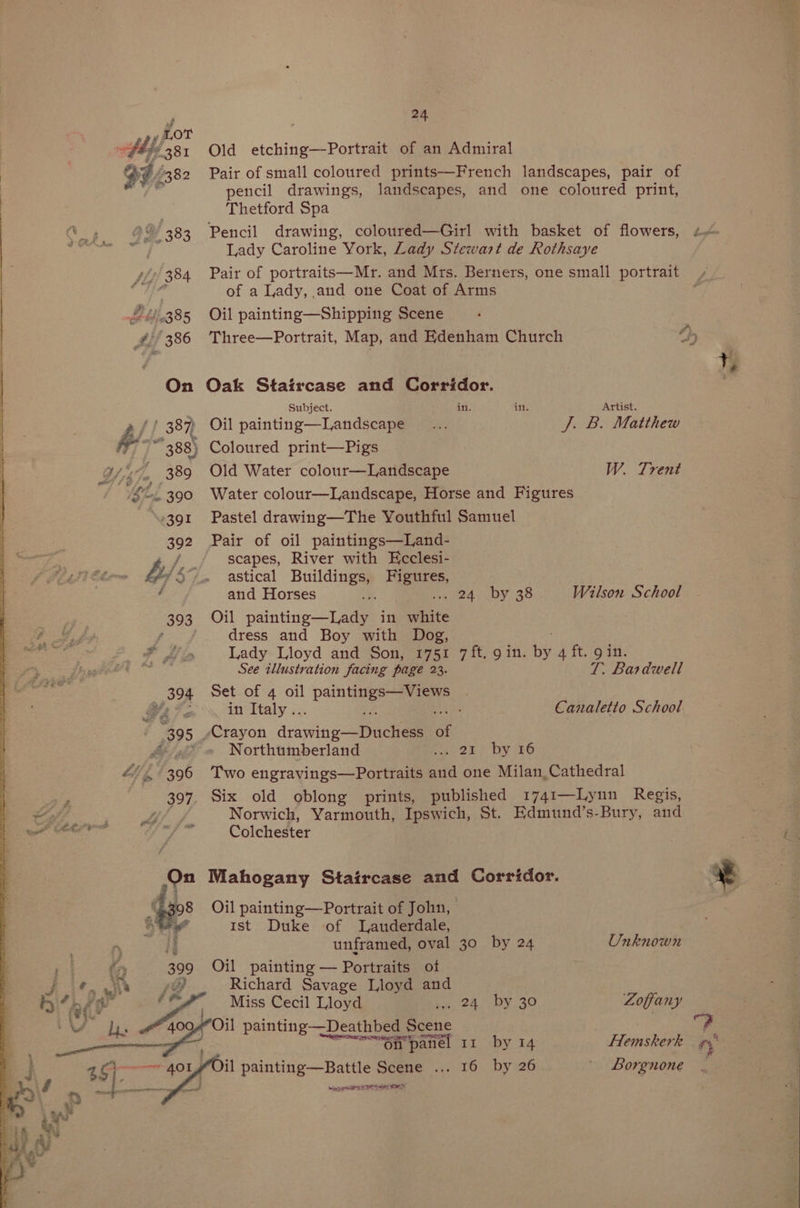 24
LOT
381 Old etching—Portrait of an Admiral
382 Pair of small coloured prints—French landscapes, pair of
pencil drawings, landscapes, and one coloured print,
Thetford Spa
383 Pencil drawing, coloured—Girl with basket of flowers,
Lady Caroline York, Lady Stewart de Rothsaye
384 Pair of portraits—Mr. and Mrs. Berners, one small portrait
of a Lady, and one Coat of Arms
385 Oil painting—Shipping Scene
386 Three—Portrait, Map, and Edenham Church
On Oak Staircase and Corridor.
Subject. in. in. Artist.
387 Oil painting—Landscape ... J. B. Matthew
388 Coloured print—Pigs
389 Old Water colour—Landscape W. Trent
390 Water colour—Landscape, Horse and Figures
391 Pastel drawing—The Youthful Samuel
392 Pair of oil paintings—Land-
scapes, River with Ecclesi-
astical Buildings, Figures,
and Horses ... ... 24 by 38 Wilson School
393 Oil painting—Lady in white
dress and Boy with Dog,
Lady Lloyd and Son, 1751 7 ft. 9 in. by 4 ft. 9 in.
See illustration facing page 23. T. Bardwell
394 Set of 4 oil paintings—Views
in Italy ... ... ... Canaletto School
395 Crayon drawing—Duchess of
Northumberland ... 21 by 16
396 Two engravings—Portraits and one Milan Cathedral
397 Six old oblong prints, published 1741—Lynn Regis,
Norwich, Yarmouth, Ipswich, St. Edmund's-Bury, and
Colchester
On Mahogany Staircase and Corridor.
398 Oil painting—Portrait of John,
1st Duke of Lauderdale,
unframed, oval 30 by 24 Unknown
399 Oil painting — Portraits of
Richard Savage Lloyd and
Miss Cecil Lloyd ... 24 by 30 Zoffany
400 Oil painting—Deathbed Scene
on panel 11 by 14 Hemskerk
401 Oil painting—Battle Scene ... 16 by 26 Borgnone